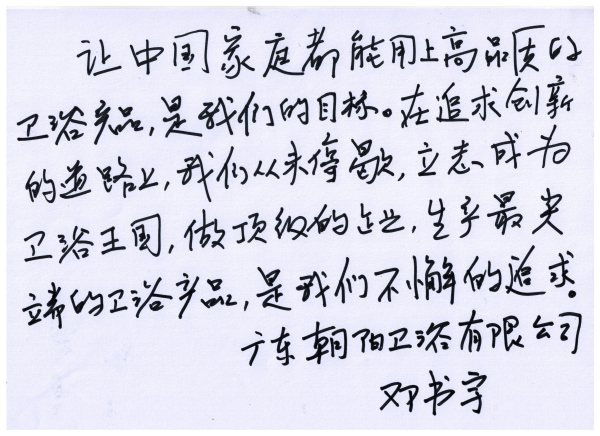 让中国家庭都能用上高品质的
卫浴产品,是我们的目标。在追求创新
的道路上,我们从未停歇,立志成为
卫浴王国,做顶级的企业,生产最尖
端的卫浴产品,是我们不懈的追求。
广东朝阳卫浴有限公司
邓书宇